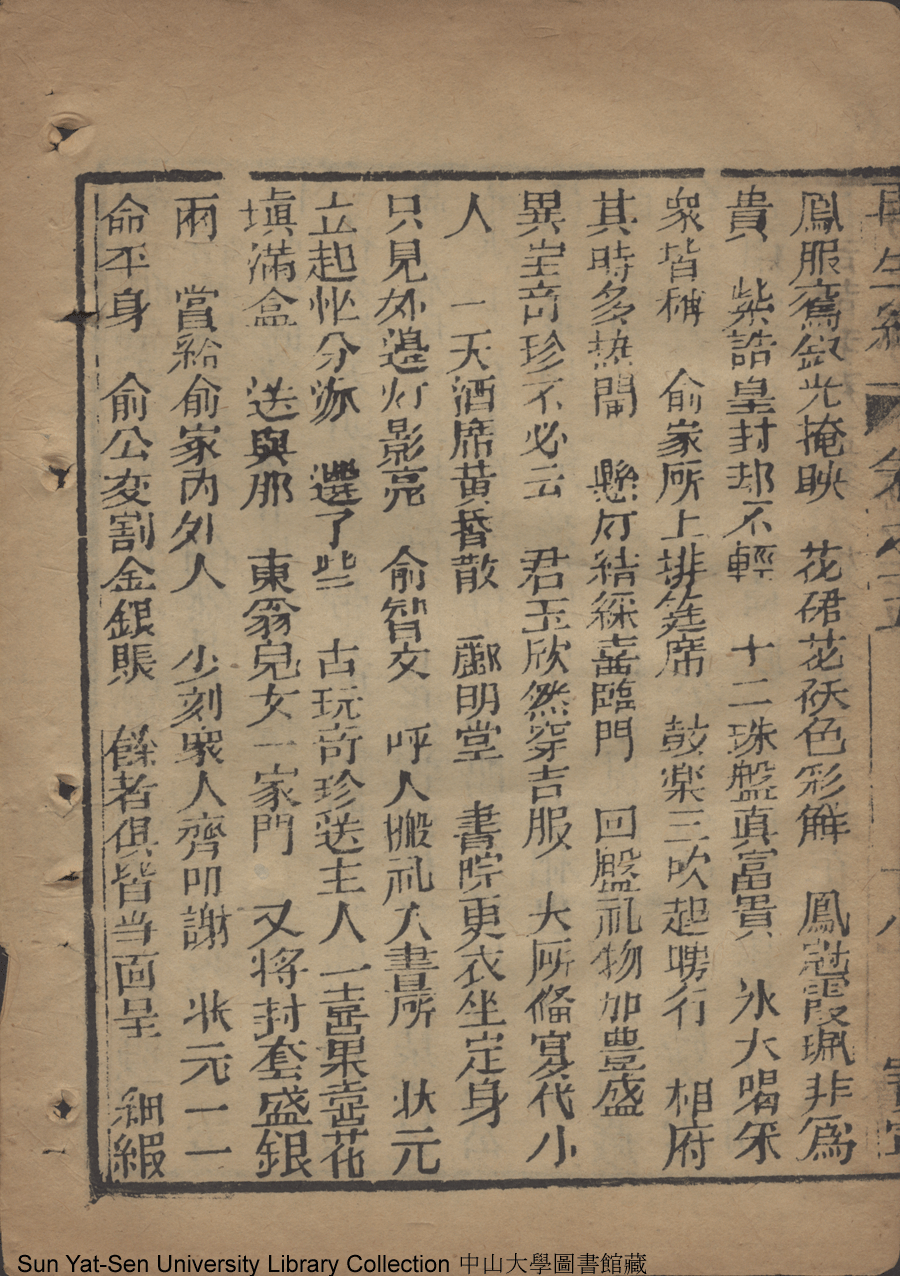 再生緣 卷之五 十八 寶寧
鳳服鸞釵光掩映　花裙花袄色彩鮮　鳳冠霞珮非爲
貴　紫誥皇封却不輕　十二珠盤真富貴　氷大喝釆
衆皆称　俞家所上排筵席　鼓楽三吹起聘行　相府
其時多热閙　懸灯結綵喜臨門　回盤礼物加豊盛
異宝奇珍不必云　君玉欣然穿吉服　大所偹宴代小
人　一天酒席黄昏散　酈明堂　書院更衣坐定身
只見外邉灯影亮　俞智文　呼人搬礼入書所　状元
立起忙分派　選了些　古玩奇珍送主人　喜果喜花
塡滿盒　送與那　東翁兒女一家門　又将封套盛銀
兩　當給俞家内外人　少刻衆人齊叩謝　状元一一
命平身　俞公交割金銀賬　餘者俱皆当面呈　細緞
Sun Yat-Sen University Library Collection 中山大學圖書館藏